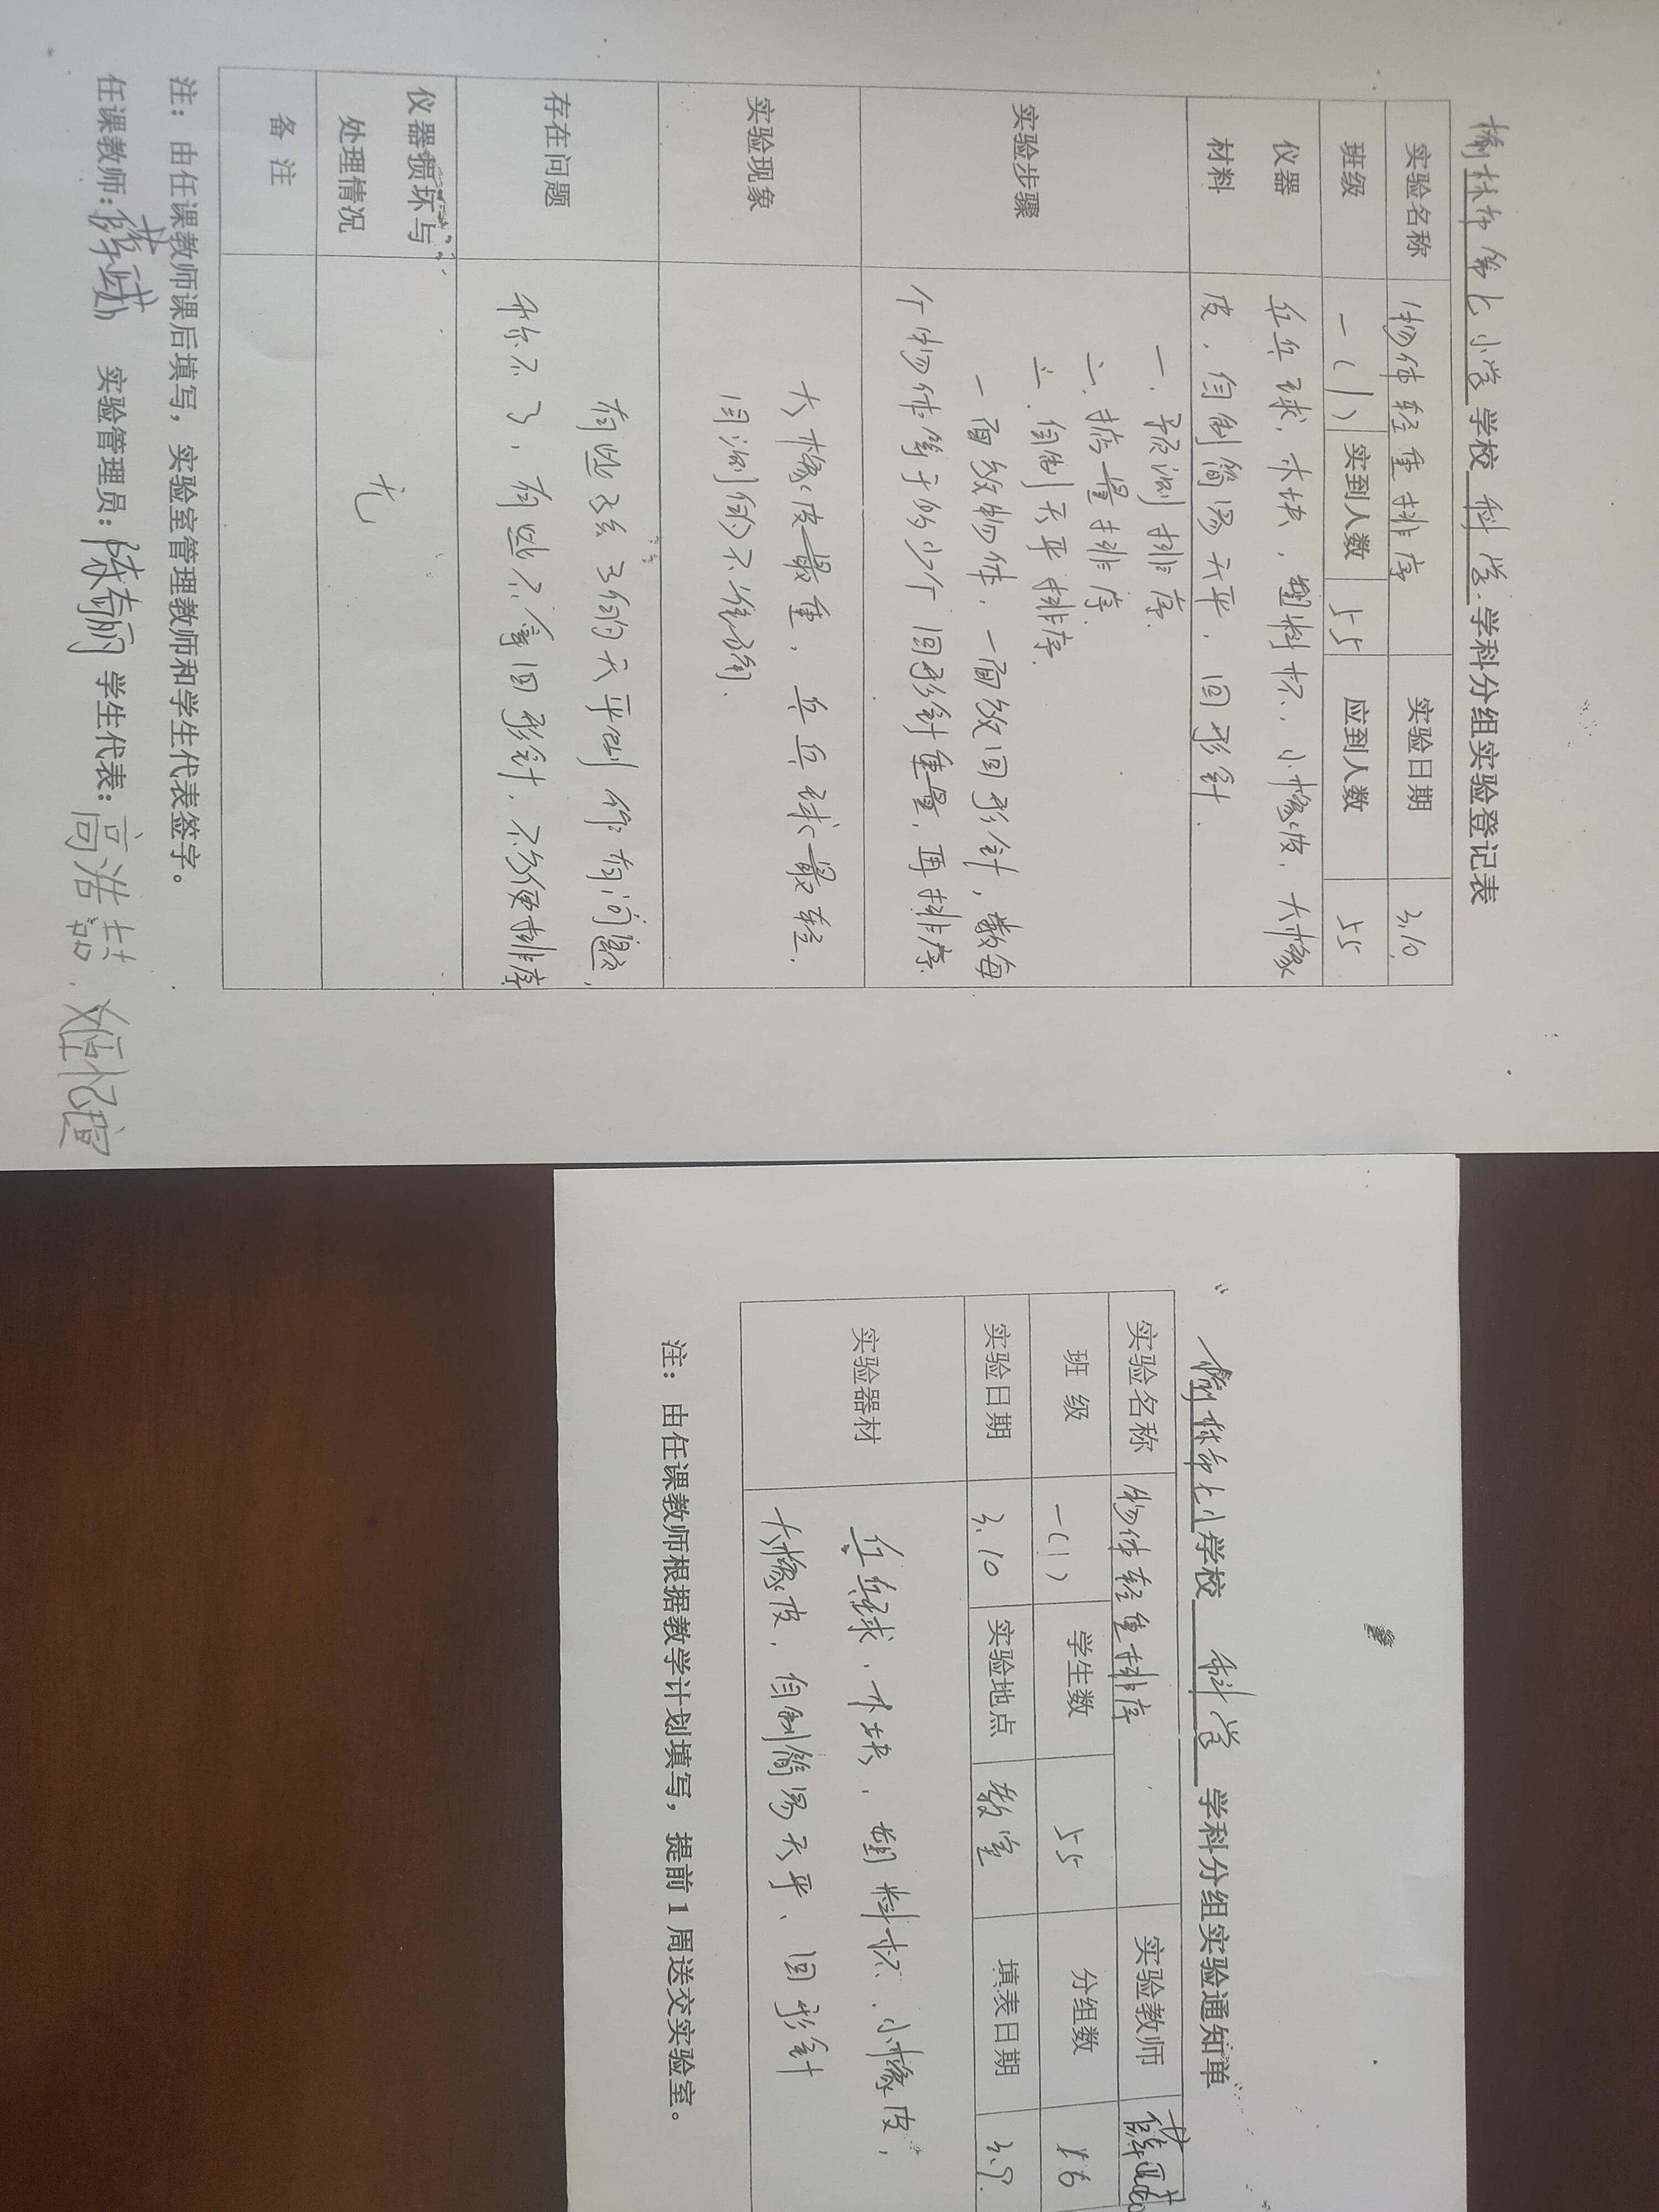 榆林市第七小学学校 科学 学科分组实验登记表
实验名称 物体轻重排序 实验日期 3.10
班级 一(1) 实到人数 55 应到人数 55
仪器 乒乓球、木块、塑料杯、小橡皮、大橡
材料 皮、自制简易天平、回形针.
实验步骤
一. 预测排序.
二. 掂量排序.
三. 自制天平排序.
一面放物体,一面放回形针,数每
个物体等于多少个回形针重量,再排序.
实验现象
大橡皮最重,乒乓球最轻,
目测的不准确.
存在问题
有些孩子的天平制作有问题,
称不了,有些不拿回形针,不方便排序
仪器损坏与
处理情况
无
备 注
注:由任课教师课后填写,实验室管理教师和学生代表签字。
任课教师: 实验管理员: 学生代表:
榆林市七小学校 科学 学科分组实验通知单
实验名称 物体轻重排序 实验教师
班 级 一(1) 学生数 55 分组数
实验日期 3.10 实验地点 教室 填表日期 3.9.
实验器材
乒乓球、木块、塑料杯、小橡皮、
大橡皮、自制简易天平、回形针
注:由任课教师根据教学计划填写,提前1周送交实验室。